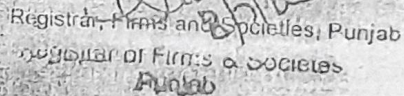 Registrar, Firms and Societies, Punjab
Registrar of Firms & Societies
Punjab